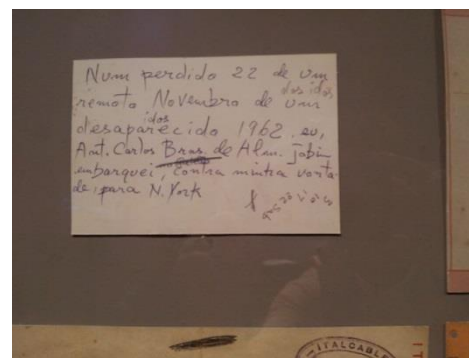 Num perdido 22 de um
dos idos
remoto Novembro de um
idos
desaparecido 1962, eu,
Ant. Carlos Bras. de Alm. Jobim
embarquei, contra minha vonta-
de, para N. York
ITALCABLE